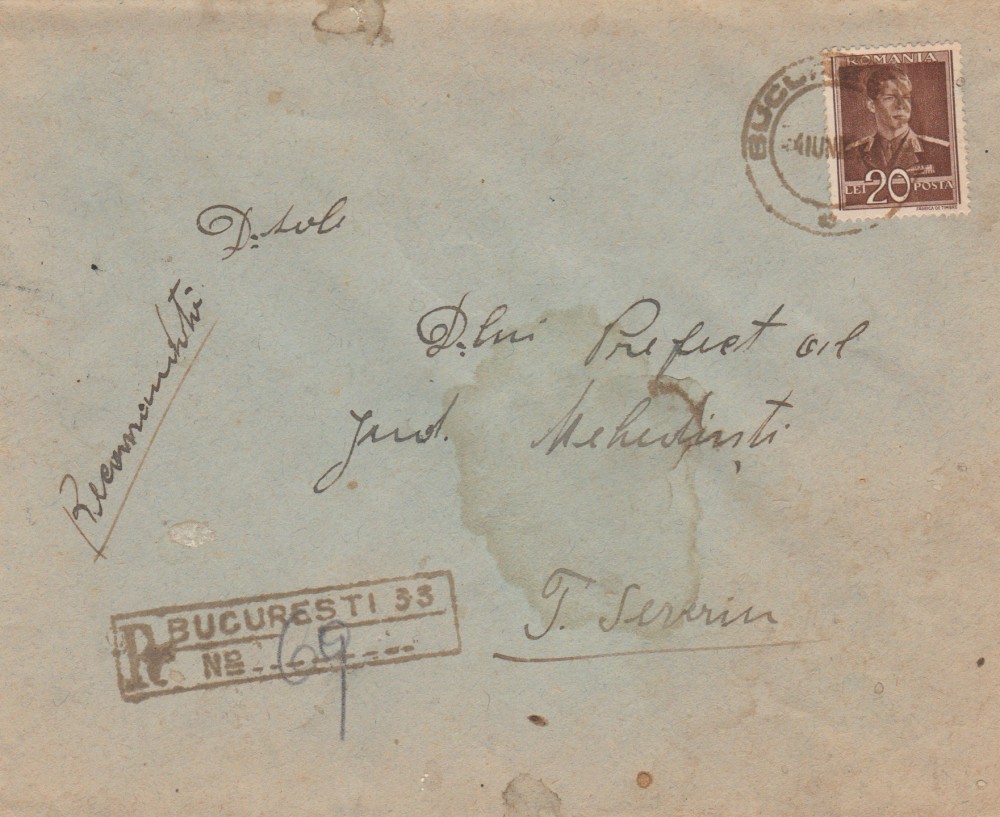 ROMANIA
LEI 20 POSTA
FABRICA DE TIMBRE
BUCU
4 IUN
D-sale
D-lui Prefect al
Jud. Mehedinți
T. Severin
Recomandată
R BUCURESTI 33
No 69